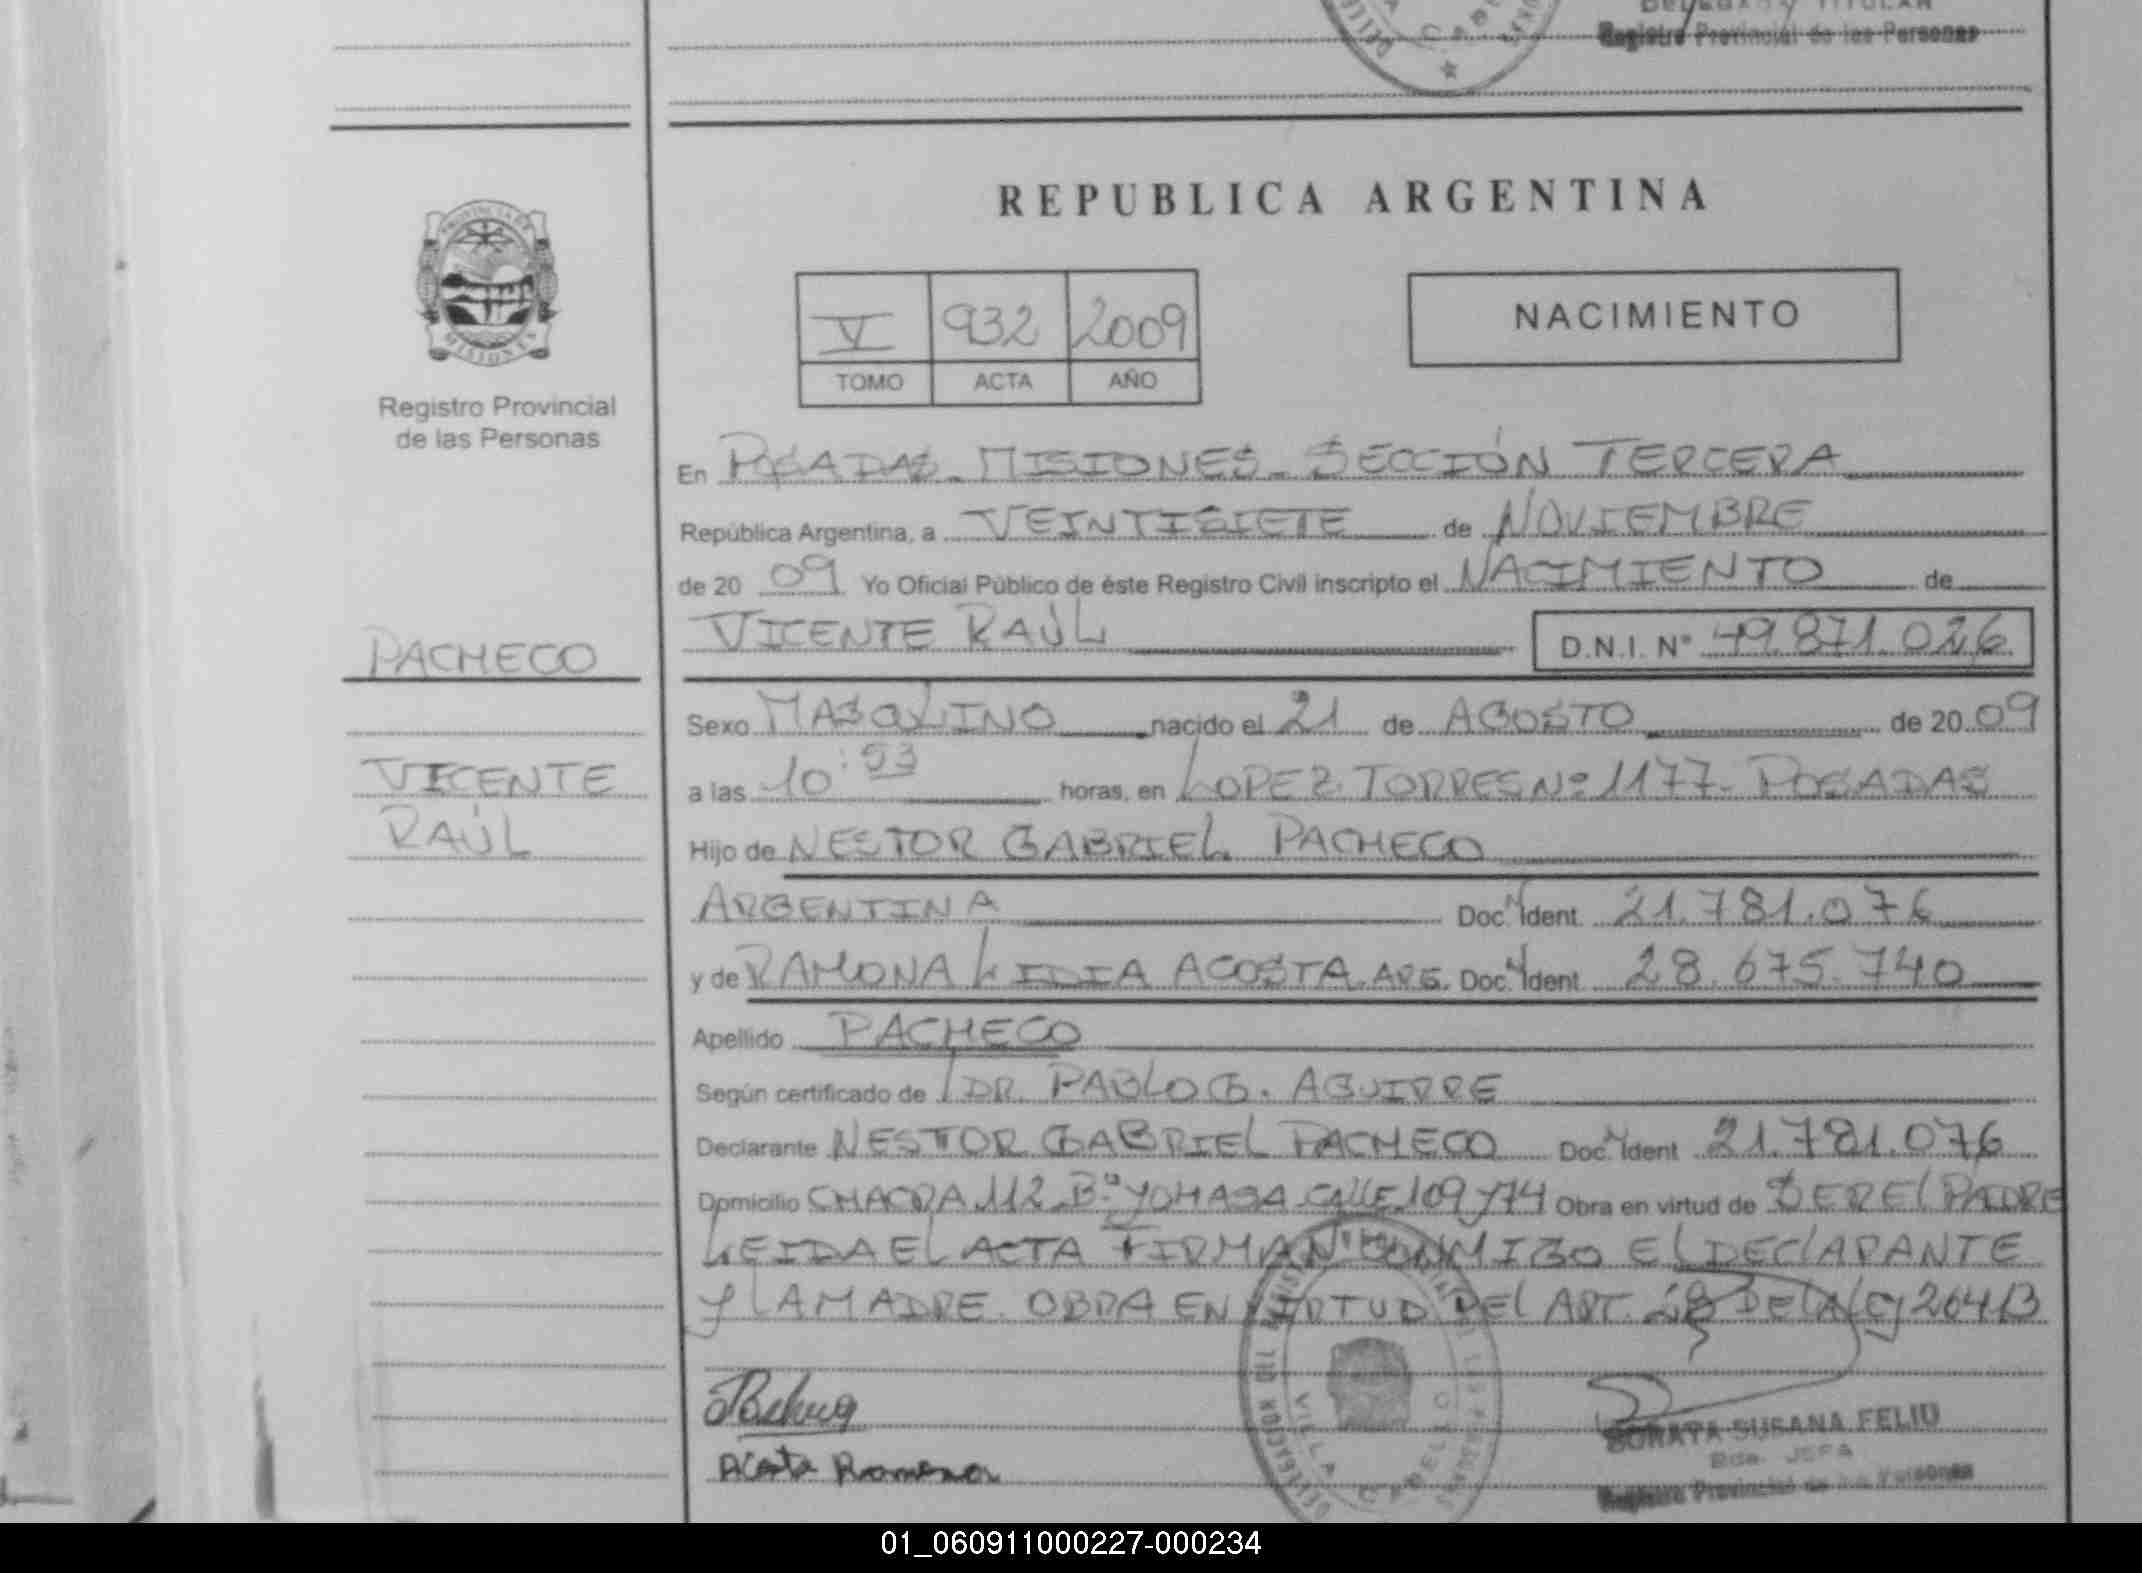 DELEGADA TITULAR
Registro Provincial de las Personas
PROVINCIA DE
MISIONES
Registro Provincial
de las Personas
REPUBLICA ARGENTINA
V 932 2009
TOMO ACTA AÑO
NACIMIENTO
En POSADAS - MISIONES - SECCIÓN TERCERA
República Argentina, a VEINTISIETE de NOVIEMBRE
de 20 09 Yo Oficial Público de éste Registro Civil inscripto el NACIMIENTO de
VICENTE RAÚL D.N.I. Nº 49.871.026
PACHECO
VICENTE
RAÚL
Sexo MASCULINO nacido el 21 de AGOSTO de 20 09
a las 10:53 horas, en LOPEZ TORRES Nº 1177 - POSADAS
Hijo de NESTOR GABRIEL PACHECO
ARGENTINA Doc. Ident. 21.781.076
y de RAMONA LIDIA ACOSTA. ARG. Doc. Ident. 28.675.740
Apellido PACHECO
Según certificado de DR. PABLO G. AGUIRRE
Declarante NESTOR GABRIEL PACHECO Doc. Ident. 21.781.076
Domicilio CHACRA 112 Bº YOHASA CALLE 109 y 74 Obra en virtud de SER EL PADRE
LEIDA EL ACTA FIRMAN CONMIGO EL DECLARANTE
Y LA MADRE. OBRA EN VIRTUD DEL ART. 28 DE LA LEY 26413
Acosta Ramona
VILLA CABELLO
SORAYA SUSANA FELIU
JEFA
Registro Provincial de las Personas
01_060911000227-000234